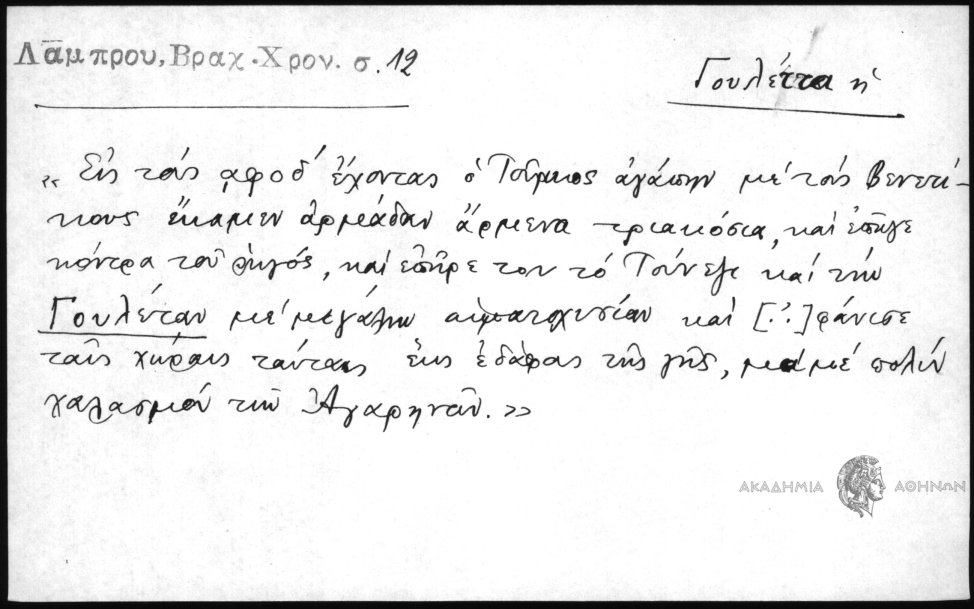 Λάμπρου, Βραχ. Χρον. σ. 12
Γουλέττα ἡ
« Εἰς τοὺς αφοδ´ ἔχοντας ὁ Τοῦρκος ἀγάπην μὲ τοὺς Βενετί-
κους ἔκαμεν ἀρμάδαν ἄρμενα τριακόσια, καὶ ἐπῆγε
κόντρα τοῦ ῥηγός, καὶ ἐπῆρε τον τὸ Τούνεζι καὶ τὴν
Γουλέταν μὲ μεγάλην αἱματοχυσίαν καὶ [..]φάνισε
ταῖς χώραις ταύταις ἕως ἐδάφας τῆς γῆς, μὰ μὲ πολὺν
χαλασμὸν τῶν Ἀγαρηνῶν. »
ΑΚΑΔΗΜΙΑ ΑΘΗΝΩΝ